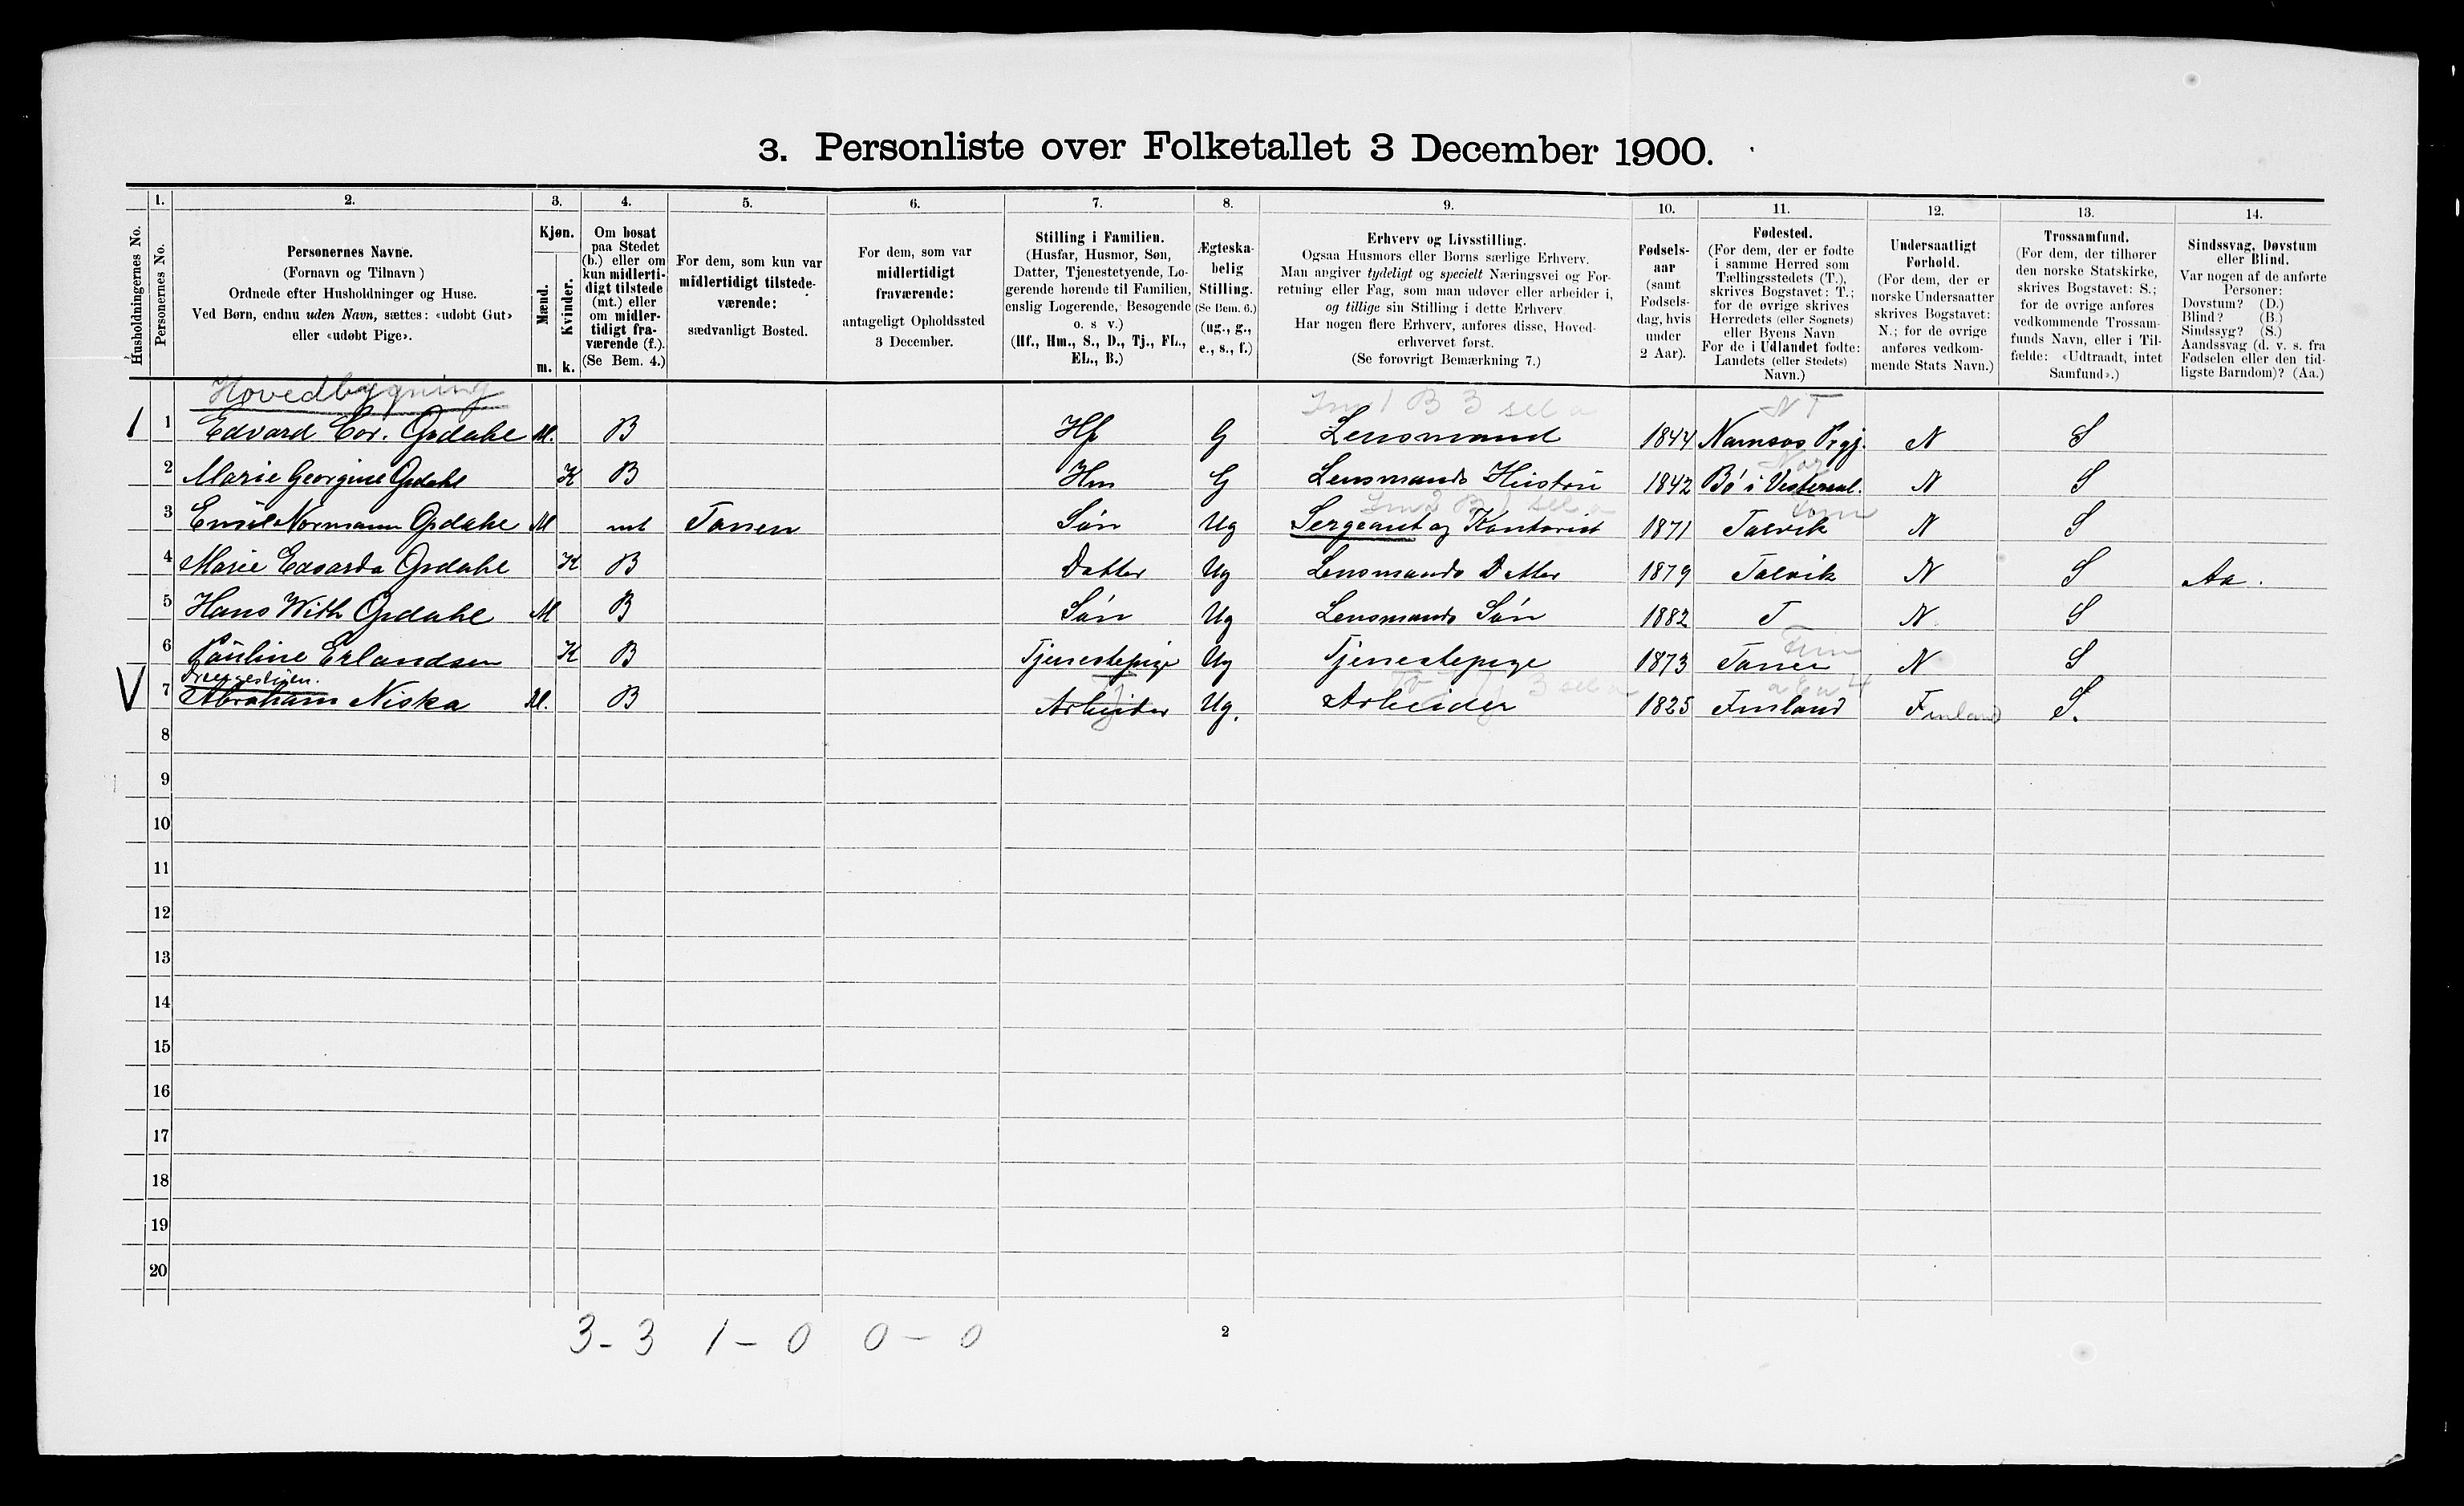 3. Personliste over Folketallet 3 December 1900.
Husholdningernes No.
1.
Personernes No.
2.
Personernes Navne.
(Fornavn og Tilnavn)
Ordnede efter Husholdninger og Huse.
Ved Børn, endnu uden Navn, sættes: «udøbt Gut»
eller «udøbt Pige».
3.
Kjøn.
Mænd.
m.
Kvinder.
k.
4.
Om bosat
paa Stedet
(b.) eller om
kun midlerti-
digt tilstede
(mt.) eller
om midler-
tidigt fra-
værende (f.).
(Se Bem. 4.)
5.
For dem, som kun var
midlertidigt tilstede-
værende:
sædvanligt Bosted.
6.
For dem, som var
midlertidigt
fraværende:
antageligt Opholdssted
3 December.
7.
Stilling i Familien.
(Husfar, Husmor, Søn,
Datter, Tjenestetyende, Lo-
gerende hørende til Familien,
enslig Logerende, Besøgende
o. s v.)
(Hf., Hm., S., D., Tj., FL.,
EL., B.)
8.
Ægteska-
belig
Stilling.
(Se Bem. 6.)
(ug., g.,
e., s., f.)
9.
Erhverv og Livsstilling.
Ogsaa Husmors eller Børns særlige Erhverv.
Man angiver tydeligt og specielt Næringsvei og For-
retning eller Fag, som man udøver eller arbeider i,
og tillige sin Stilling i dette Erhverv.
Har nogen flere Erhverv, anføres disse, Hoved-
erhvervet først.
(Se forøvrigt Bemærkning 7.)
10.
Fødsels-
aar
(samt
Fødsels-
dag, hvis
under
2 Aar).
11.
Fødested.
(For dem, der er fødte
i samme Herred som
Tællingsstedets (T.),
skrives Bogstavet: T.;
for de øvrige skrives
Herredets (eller Sognets)
eller Byens Navn
For de i Udlandet fødte:
Landets (eller Stedets)
Navn.)
12.
Undersaatligt
Forhold.
(For dem, der er
norske Undersaatter
skrives Bogstavet:
N.; for de øvrige
anføres vedkom-
mende Stats Navn.)
13.
Trossamfund.
(For dem, der tilhører
den norske Statskirke,
skrives Bogstavet: S.;
for de øvrige anføres
vedkommende Trossam-
funds Navn, eller i Til-
fælde: «Udtraadt, intet
Samfund».)
14.
Sindssvag, Døvstum
eller Blind.
Var nogen af de anførte
Personer:
Døvstum? (D.)
Blind? (B.)
Sindssyg? (S.)
Aandssvag (d. v. s. fra
Fødselen eller den tid-
ligste Barndom)? (Aa.)
Hovedbygning
1 1 Edvard Cor. Opdahl M. B Hf G Lensmand 1844 Namsos Prgj. N S
2 Marie Georgine Opdahl K B Hm G Lensmands Hustru 1842 Bø i Vesteraal. N S
3 Emil Normann Opdahl M mt Tanen Søn Ug Sergeant og Kontorist 1871 Talvik N S
4 Marie Edvarda Opdahl K B Datter Ug Lensmands Datter 1879 Talvik N S Aa.
5 Hans With Opdahl M B Søn Ug Lensmands Søn 1882 T N. S
6 Pauline Erlandsen K B Tjenestepige Ug Tjenestepige 1873 Tanen N S
Drengestuen.
7 Abraham Niska M. B Arbeider Ug. Arbeider 1825 Finland Finland S.
8
9
10
11
12
13
14
15
16
17
18
19
20
3 - 3 1 - 0 0 - 0
2